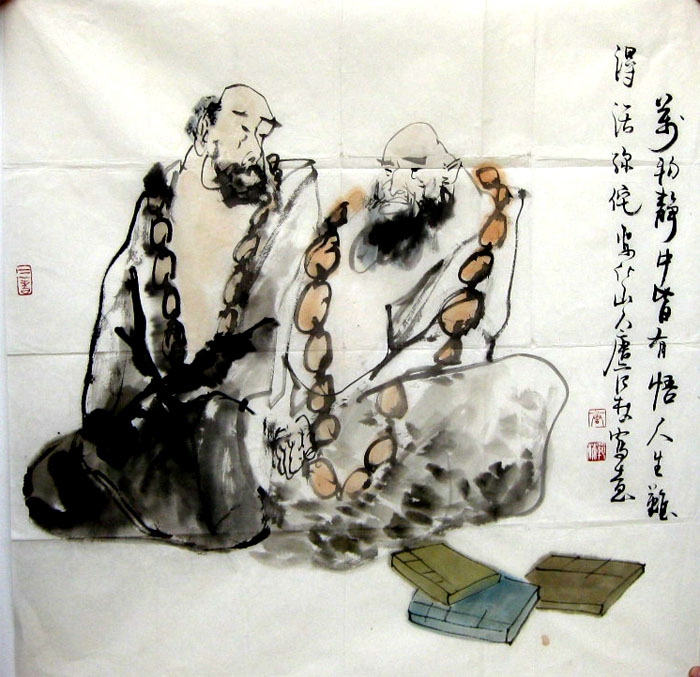 萬物靜中皆有悟人生難
得活弥佗
山人廬
寫意